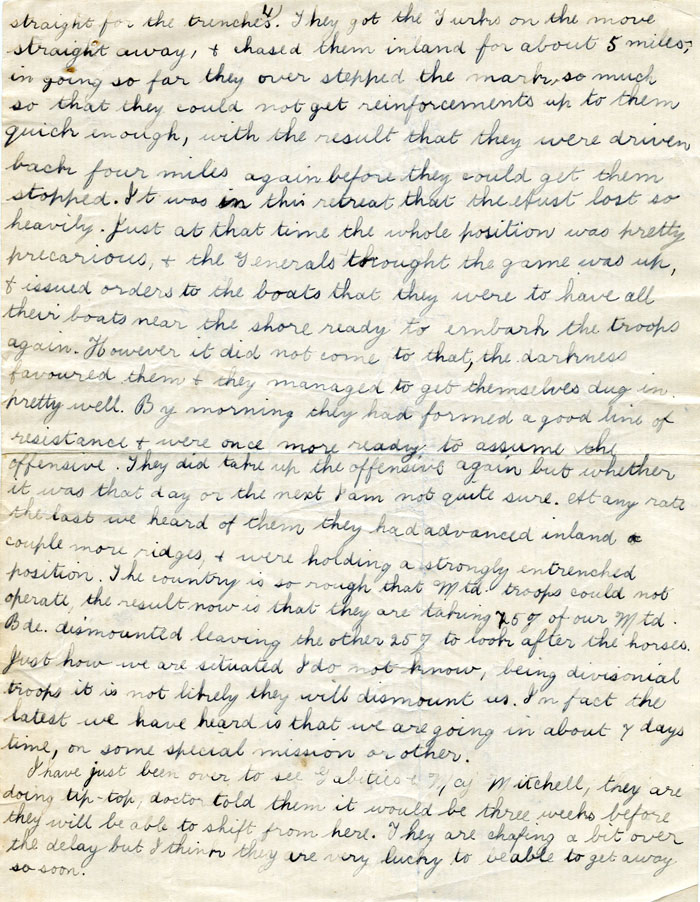 4)
straight for the trenches. They got the Turks on the move
straight away, & chased them inland for about 5 miles,
in going so far they over stepped the mark, so much
so that they could not get reinforcements up to them
quick enough, with the result that they were driven
back four miles again before they could get them
stopped. It was in this retreat that the Aust lost so
heavily. Just at that time the whole position was pretty
precarious, & the Generals thought the game was up,
& issued orders to the boats that they were to have all
their boats near the shore ready to embark the troops
again. However it did not come to that, the darkness
favoured them & they managed to get themselves dug in
pretty well. By morning they had formed a good line of
resistance & were once more ready to assume the
offensive. They did take up the offensive again but whether
it was that day or the next I am not quite sure. At any rate
the last we heard of them they had advanced inland a
couple more ridges, & were holding a strongly entrenched
position. The country is so rough that Mtd. troops could not
operate, the result now is that they are taking 75% of our Mtd.
Bde. dismounted leaving the other 25% to look after the horses.
Just how we are situated I do not know, being divisonial
troops it is not likely they will dismount us. In fact the
latest we have heard is that we are going in about 7 days
time, on some special mission or other.
I have just been over to see Mitchell, they are
doing tip-top, doctor told them it would be three weeks before
they will be able to shift from here. They are chafing a bit over
the delay but I think they are very lucky to be able to get away
so soon.